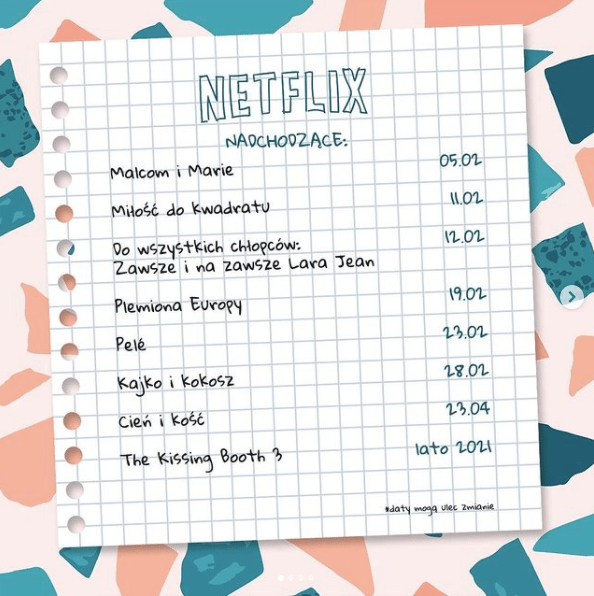 NETFLIX
NADCHODZĄCE:
Malcom i Marie 05.02
Miłość do kwadratu 11.02
Do wszystkich chłopców: 12.02
Zawsze i na zawsze Lara Jean
Plemiona Europy 19.02
Pelé 23.02
Kajko i kokosz 28.02
Cień i kość 23.04
The Kissing Booth 3 lato 2021
*daty mogą ulec zmianie